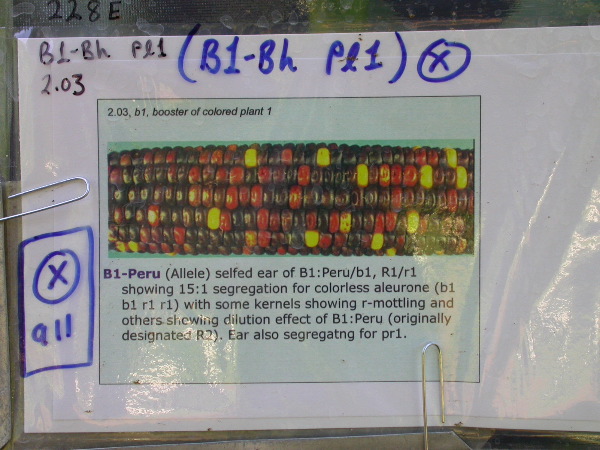 228E
B1-Bh Pl1
(B1-Bh Pl1) X
2.03
2.03, b1, booster of colored plant 1
B1-Peru (Allele) selfed ear of B1:Peru/b1, R1/r1
showing 15:1 segregation for colorless aleurone (b1
b1 r1 r1) with some kernels showing r-mottling and
others showing dilution effect of B1:Peru (originally
designated R2). Ear also segregatng for pr1.
X
all